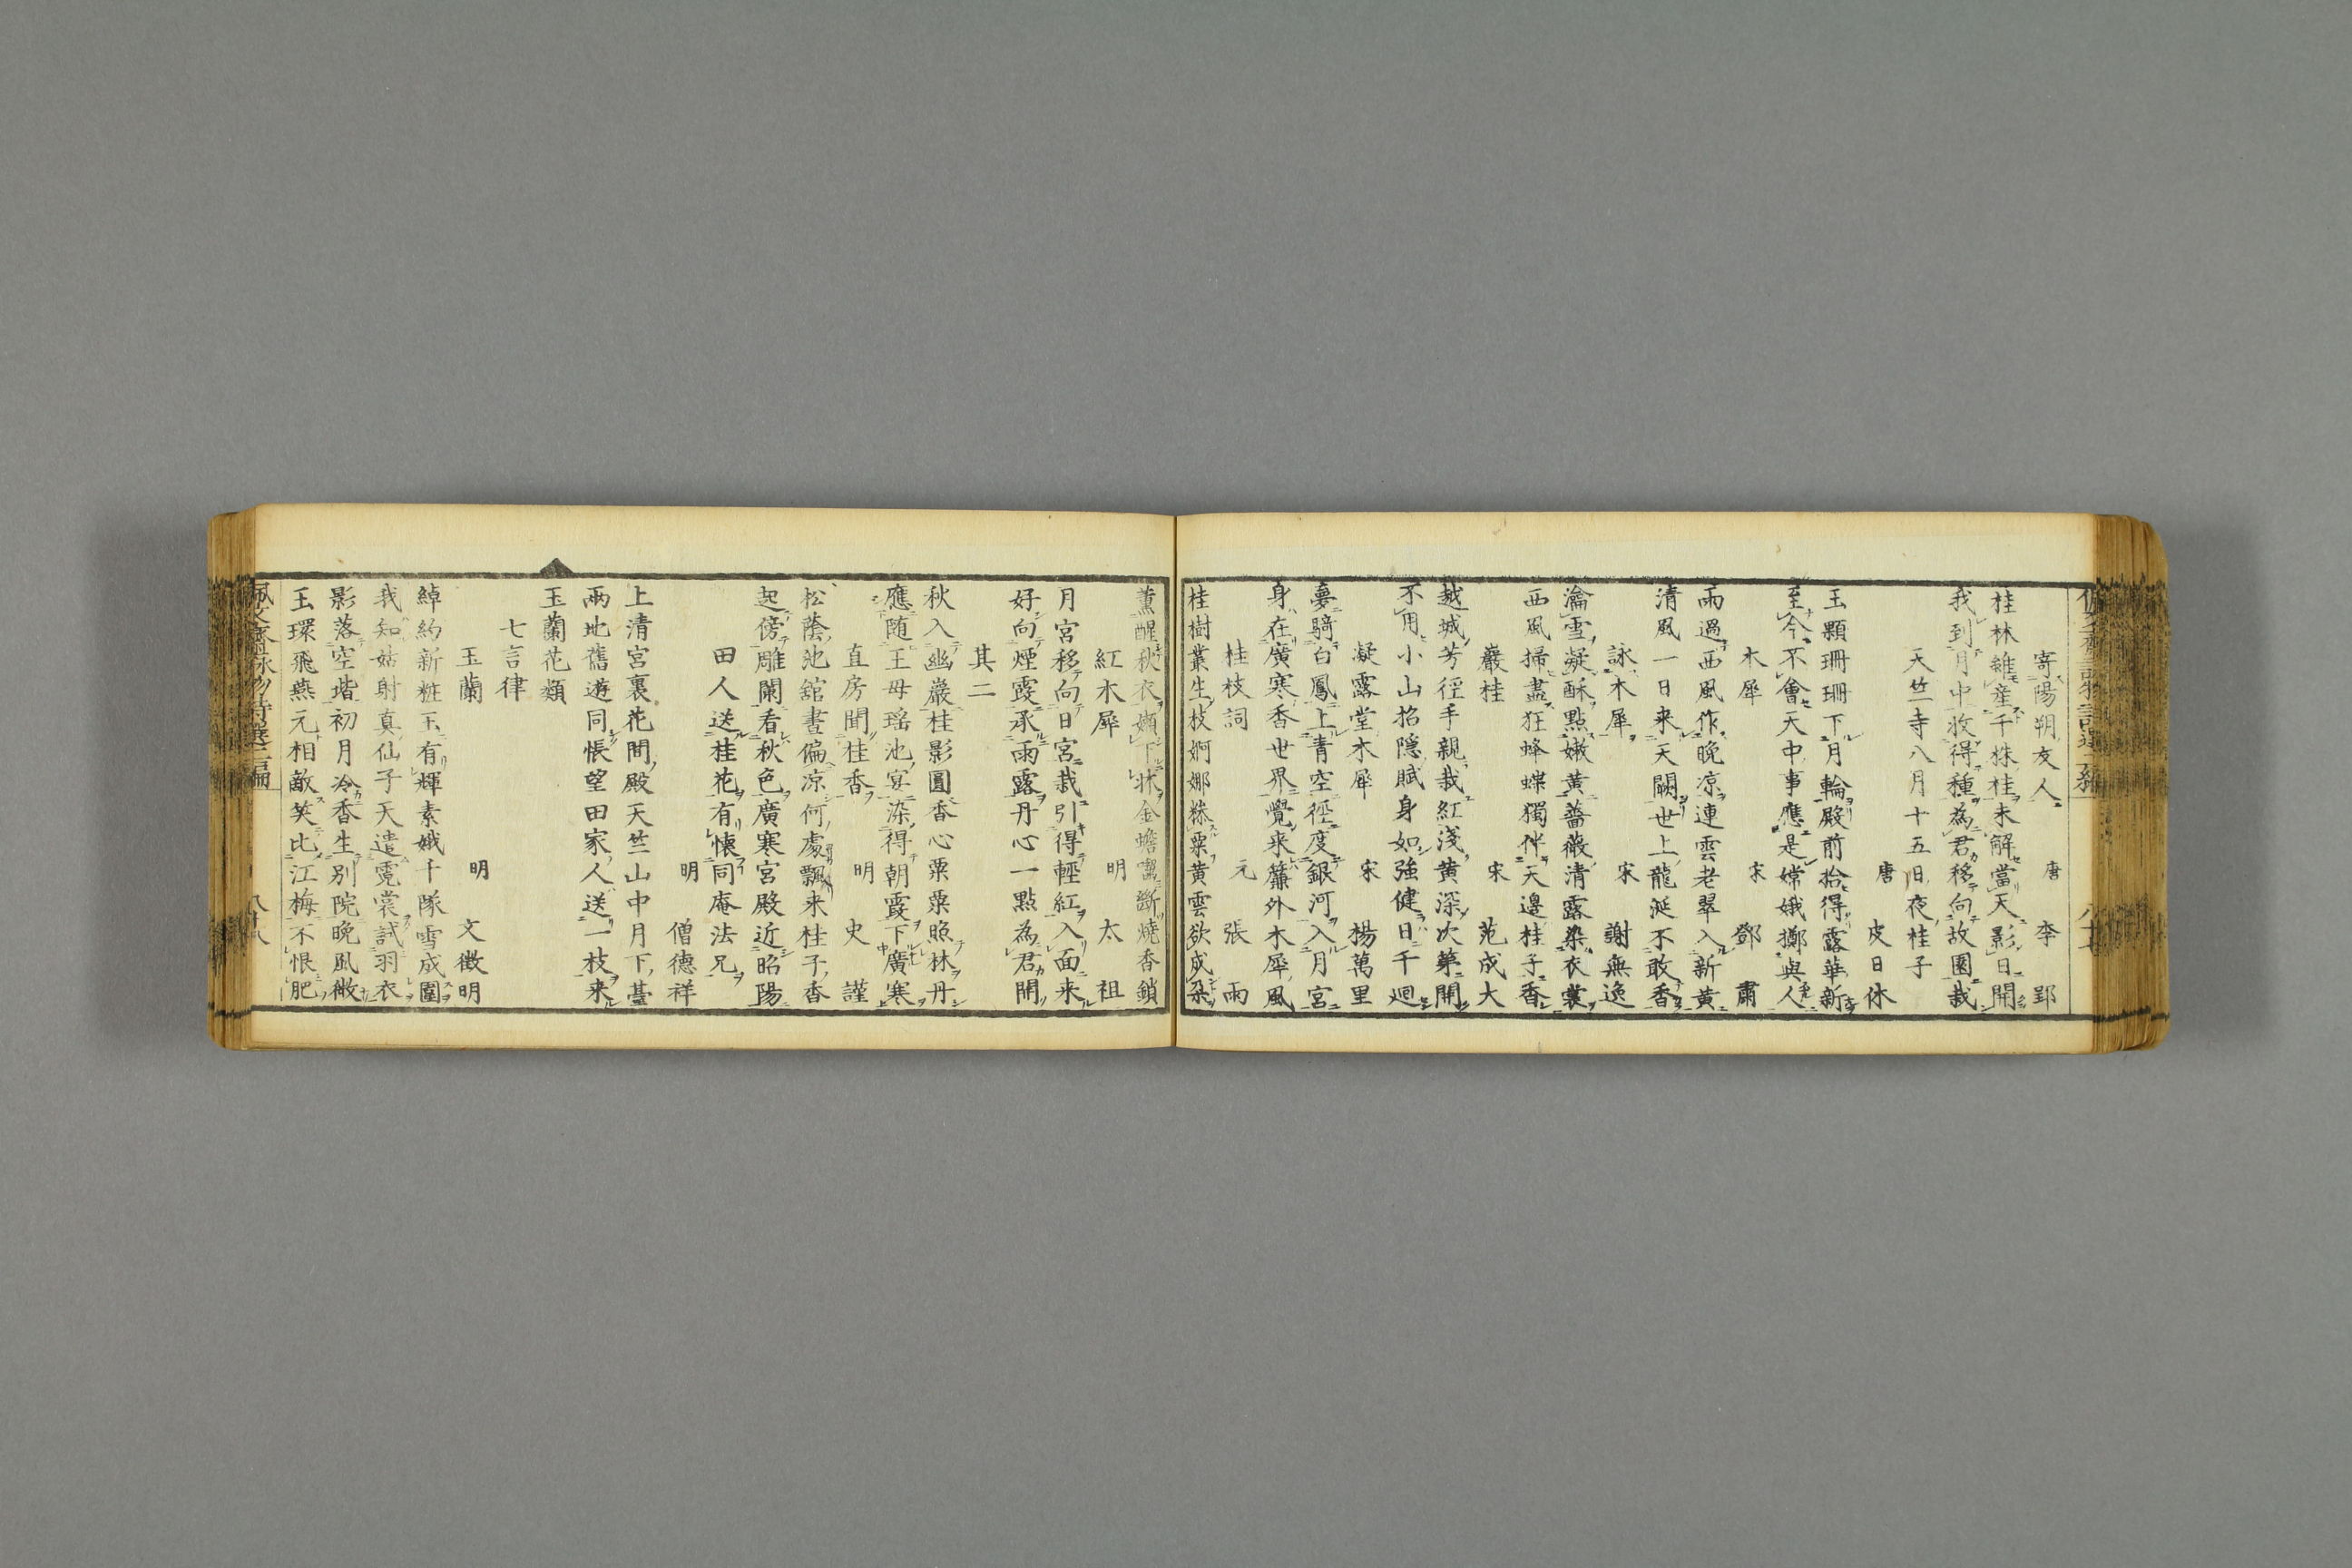 寄陽朔友人 唐 李郢
桂林雖産千株桂未解當天影日開
我到月中收得種為君移向故園栽
天竺寺八月十五日夜桂子
唐 皮日休
玉顆珊珊下月輪殿前拾得露華新
至今不會天中事應是嫦娥擲與人
木犀 宋 鄧肅
雨過西風作晚凉連雲老翠入新黄
清風一日来天闕世上龍涎不敢香
詠木犀 宋 謝無逸
瀹雪凝酥點嫩黄薔薇清露染衣裳
西風掃盡狂蜂蝶獨伴天邊桂子香
巖桂 宋 范成大
越城芳徑手親栽紅淺黄深次第開
不用小山招隠賦身如強健日千廻
凝露堂木犀 宋 楊萬里
夢騎白鳳上青空徑度銀河入月宮
身在廣寒香世界覺来簾外木犀風
桂枝詞 元 張雨
桂樹叢生枝婀娜糝粟黄雲欲成朶
薰醒秋衣嬾下牀金蟾齧斷燒香鎖
紅木犀 明 太祖
月宮移向日宮栽引得輕紅入面来
好向煙霞承雨露丹心一點為君開
其二
秋入幽巖桂影團香心粟粟照林丹
應随王母瑶池宴染得朝霞下廣寒
直房聞桂香 明 史謹
松蔭池舘晝偏凉何處飄来桂子香
起傍雕闌看秋色廣寒宮殿近昭陽
田人送桂花有懐同庵法兄
明 僧德祥
上清宮裏花間殿天竺山中月下臺
兩地舊遊同悵望田家人送一枝来
玉蘭花類
七言律
玉蘭 明 文徴明
綽約新粧玉有輝素娥千隊雪成圍
我知姑射真仙子天遣霓裳試羽衣
影落空堦初月冷香生別院晩風微
玉環飛燕元相敵笑比江梅不恨肥